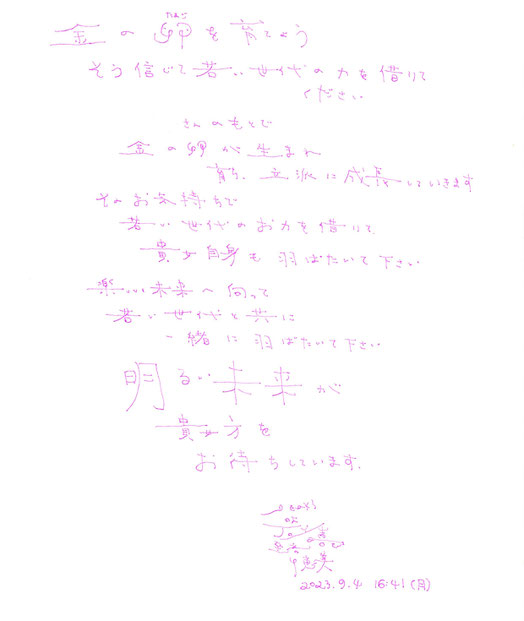 金の卵を育てよう
たまご
そう信じて若い世代の力を借りて
ください
さんのもとで
金の卵が生まれ
育ち、立派に成長していきます
そのお気持ちで
若い世代のお力を借りて
貴女自身も羽ばたいて下さい
楽しい未来へ向って
若い世代と共に
一緒に羽ばたいて下さい
明るい未来が
貴女方を
お待ちしています。
2023.9.4 16:41(月)